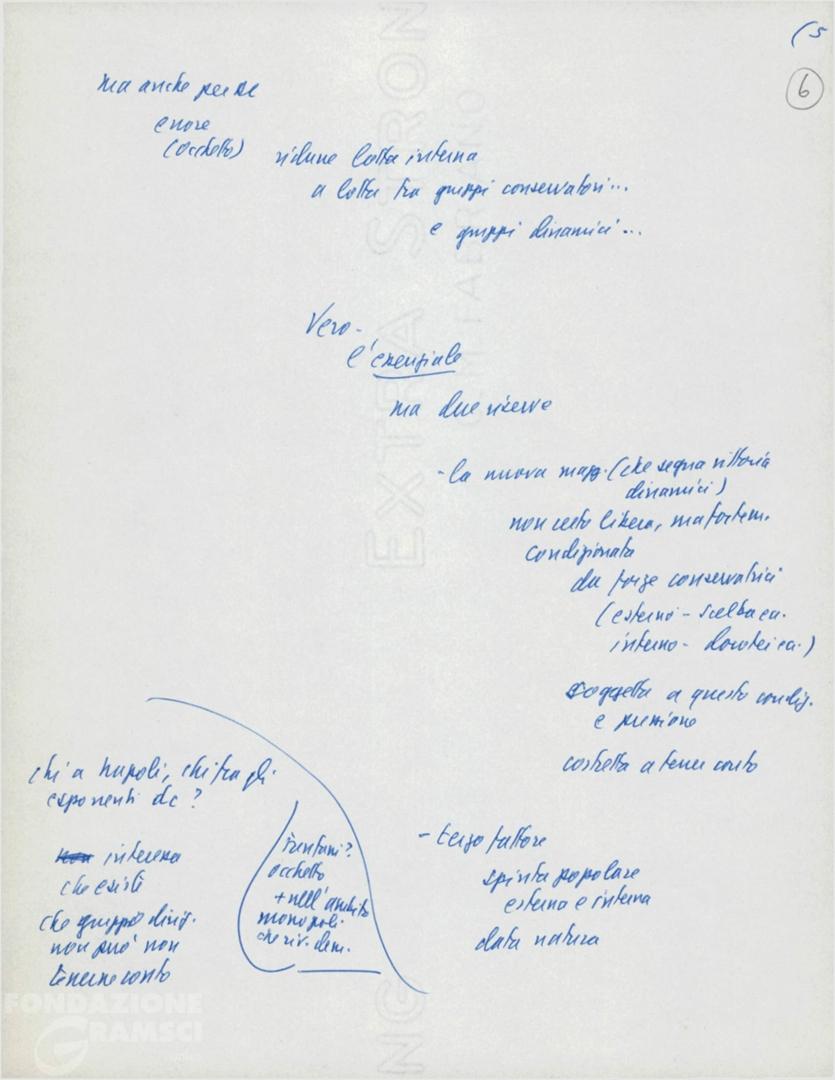 (5
6
ma anche per se
errore
(Occhetto)
ridurre lotta interna
a lotta tra gruppi conservatori...
e gruppi dinamici...
Vero -
l'essenziale
ma due riserve
- la nuova magg. (che segna vittoria
dinamici)
non certo libera, ma fortem.
condizionata
da forze conservatrici
(esterno - Scelba ecc.
interno - dorotei ecc.)
soggetta a questo condiz.
e pressione
costretta a tener conto
chi a Napoli, chi fra gli
esponenti dc?
interessa
che esiste
che gruppo dirig.
non può non
tenerne conto
Fanfani?
Occhetto
+ nell'ambito
monopoli
che riv. dem.
- terzo fattore
spinta popolare
esterna e interna
data natura
EXTRA STRONG
FABRIANO
FONDAZIONE
GRAMSCI